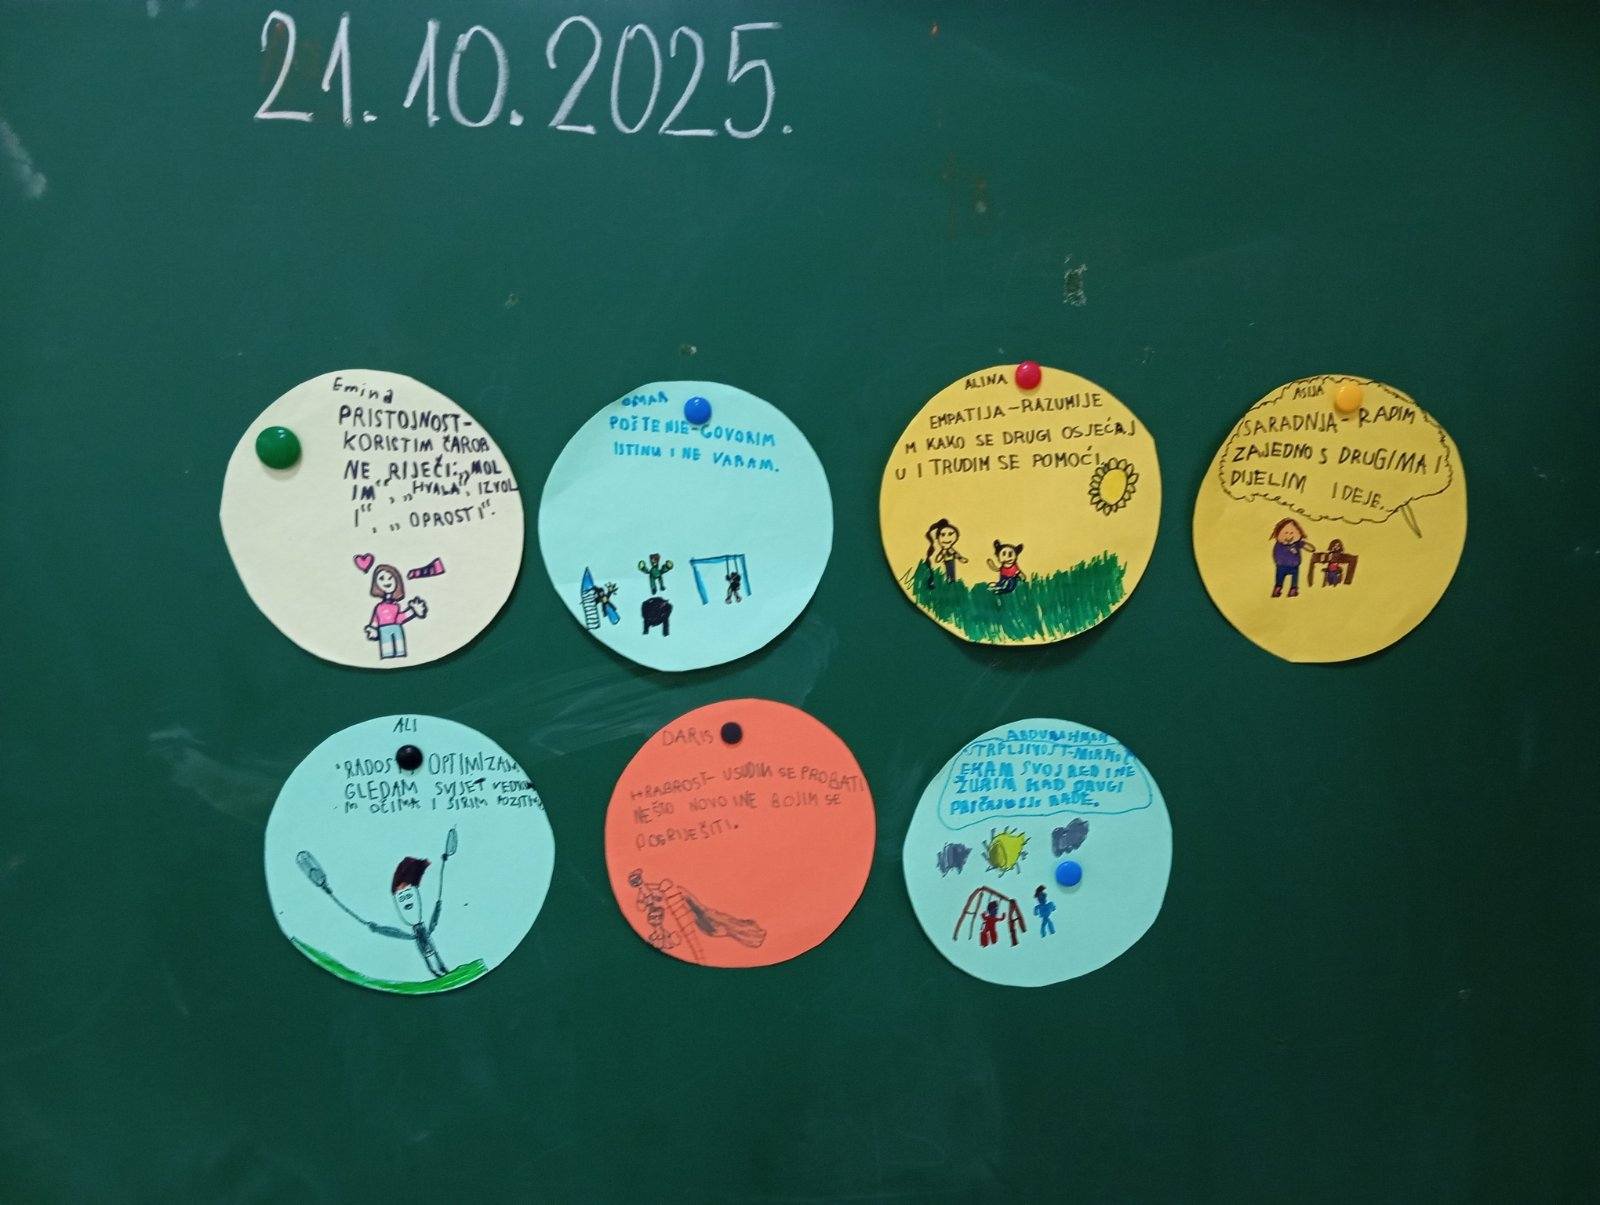 21.10.2025.
Emina
PRISTOJNOST-
KORISTIM ČAROB
NE RIJEČI:„MOL
IM“, „HVALA“, IZVOL
I“, „OPROSTI“.
OMAR
POŠTENJE-GOVORIM
ISTINU I NE VARAM.
ALINA
EMPATIJA-RAZUMIJE
M KAKO SE DRUGI OSJEĆAJ
U I TRUDIM SE POMOĆI.
ASIJA
SARADNJA-RADIM
ZAJEDNO S DRUGIMA I
DIJELIM IDEJE.
ALI
RADOST OPTIMIZAM
GLEDAM SVIJET VEDRI
M OČIMA I ŠIRIM
DARIS
HRABROST- USUDIM SE PROBATI
NEŠTO NOVO I NE BOJIM SE
POGRIJEŠITI.
ABDURAHMAN
STRPLJIVOST-MIRNO Č
EKAM SVOJ RED I NE
ŽURIM KAD DRUGI
PRIČAJU ILI RADE.